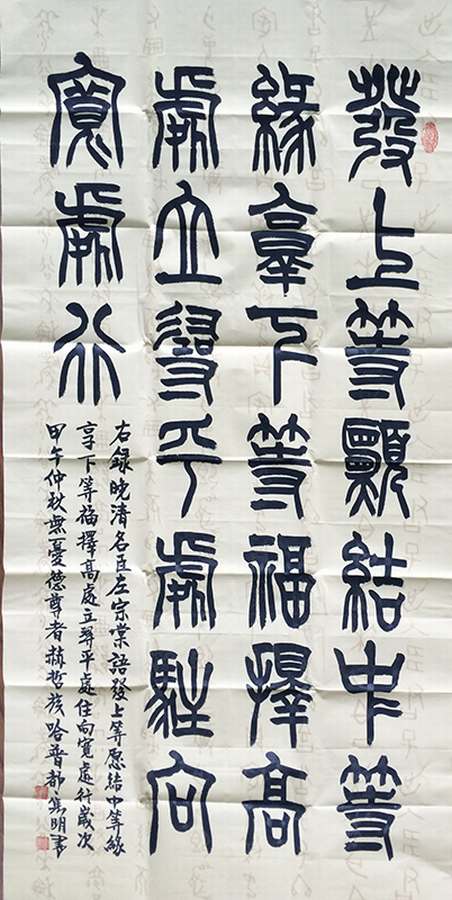 發上等願結中等
緣享下等福擇高
處立尋平處駐向
寬處行
右錄晚清名臣左宗棠語發上等愿結中等緣
享下等福擇高處立尋平處住向寬處行歲次
甲午仲秋無憂德尊者赫哲族哈普都隽明書